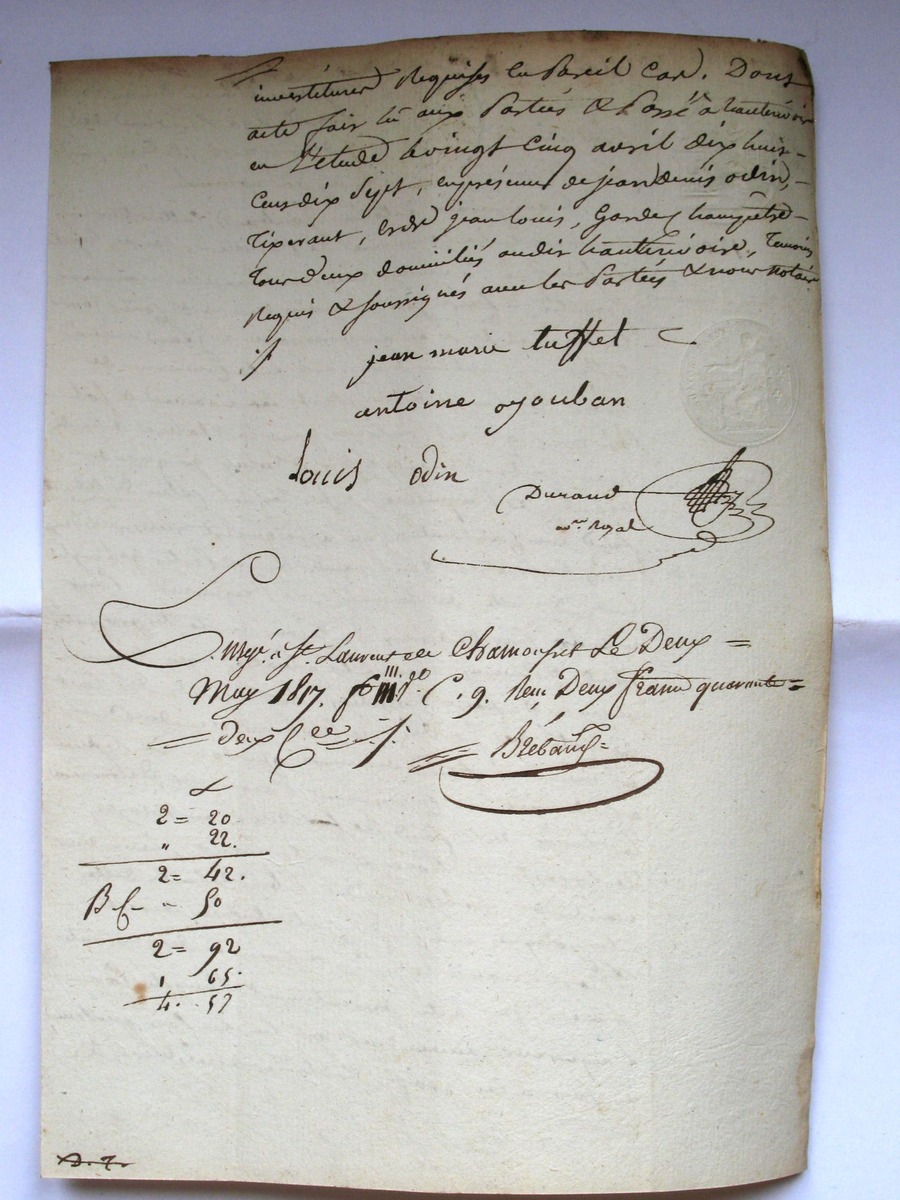 investitures Requises en Pareil Cas. Dont
acte fait lu aux Parties & Passé à hauterivoire
en l'étude le vingt cinq avril dix huit =
Cent dix Sept, en présence de jean denis odin, =
Tixerant, & jean louis, Garde Champêtre =
Tous deux domiciliés audit hauterivoire, Temoins
Requis & soussignés avec les Parties & nous notaire
jean marie tuffet
antoine oyouban
Louis odin
Durand
Nre. Royal
Enregé. à St. Laurent de Chamousset Le Deux =
May 1817. fo C. 9. Reçu Deux francs quarante =
= deux Ces
Brébaud =
2 = 20
" 22.
2 = 42.
B f - " 50
2 = 92
1 65.
4. 57